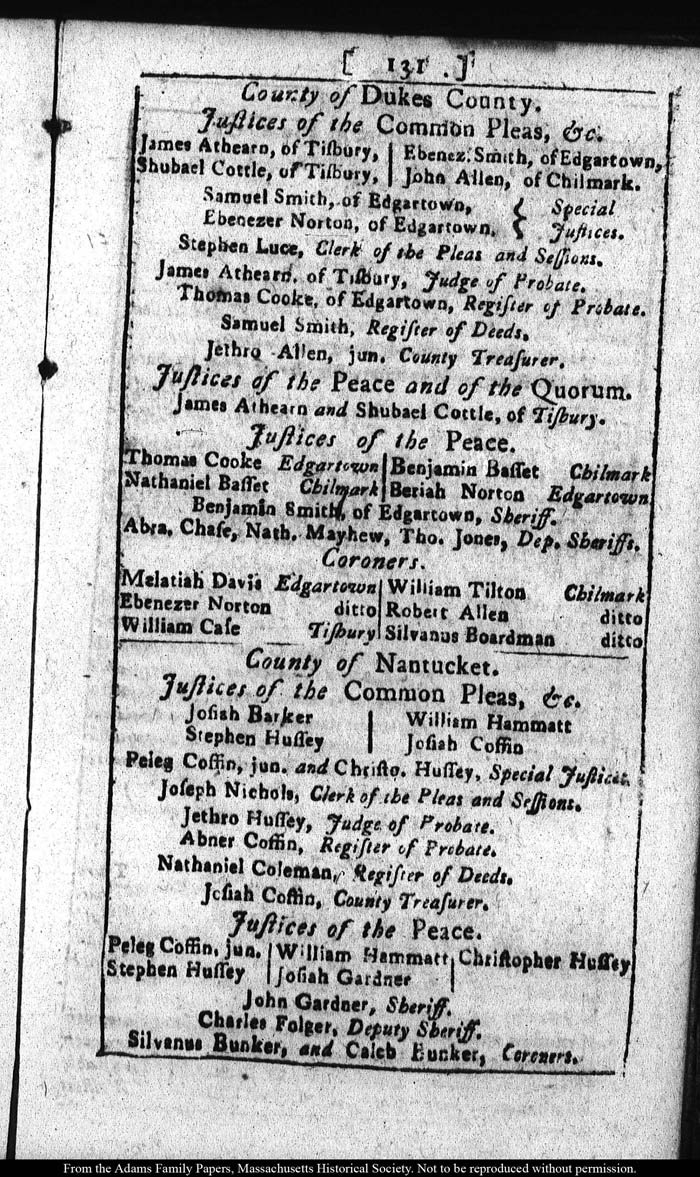 [ 131 . ]
County of Dukes County.
Juſtices of the Common Pleas, &c.
James Athearn, of Tiſbury, | Ebenez. Smith, of Edgartown,
Shubael Cottle, of Tiſbury, | John Allen, of Chilmark.
Samuel Smith, of Edgartown, { Special
Ebenezer Norton, of Edgartown, { Juſtices.
Stephen Luce, Clerk of the Pleas and Seſſions.
James Athearn, of Tiſbury, Judge of Probate.
Thomas Cooke, of Edgartown, Regiſter of Probate.
Samuel Smith, Regiſter of Deeds.
Jethro Allen, jun. County Treaſurer.
Juſtices of the Peace and of the Quorum.
James Athearn and Shubael Cottle, of Tiſbury.
Juſtices of the Peace.
Thomas Cooke Edgartown | Benjamin Baſſet Chilmark
Nathaniel Baſſet Chilmark | Beriah Norton Edgartown
Benjamin Smith, of Edgartown, Sheriff.
Abra. Chaſe, Nath. Mayhew, Tho. Jones, Dep. Sheriffs.
Coroners.
Melatiah Davis Edgartown | William Tilton Chilmark
Ebenezer Norton ditto | Robert Allen ditto
William Caſe Tiſbury | Silvanus Boardman ditto
County of Nantucket.
Juſtices of the Common Pleas, &c.
Joſiah Barker | William Hammatt
Stephen Huſſey | Joſiah Coffin
Peleg Coffin, jun. and Chriſto. Huſſey, Special Juſtices.
Joſeph Nichols, Clerk of the Pleas and Seſſions.
Jethro Huſſey, Judge of Probate.
Abner Coffin, Regiſter of Probate.
Nathaniel Coleman, Regiſter of Deeds.
Joſiah Coffin, County Treaſurer.
Juſtices of the Peace.
Peleg Coffin, jun. | William Hammatt | Chriſtopher Huſſey
Stephen Huſſey | Joſiah Gardner |
John Gardner, Sheriff.
Charles Folger, Deputy Sheriff.
Silvanus Bunker, and Caleb Bunker, Coroners.
From the Adams Family Papers, Massachusetts Historical Society. Not to be reproduced without permission.